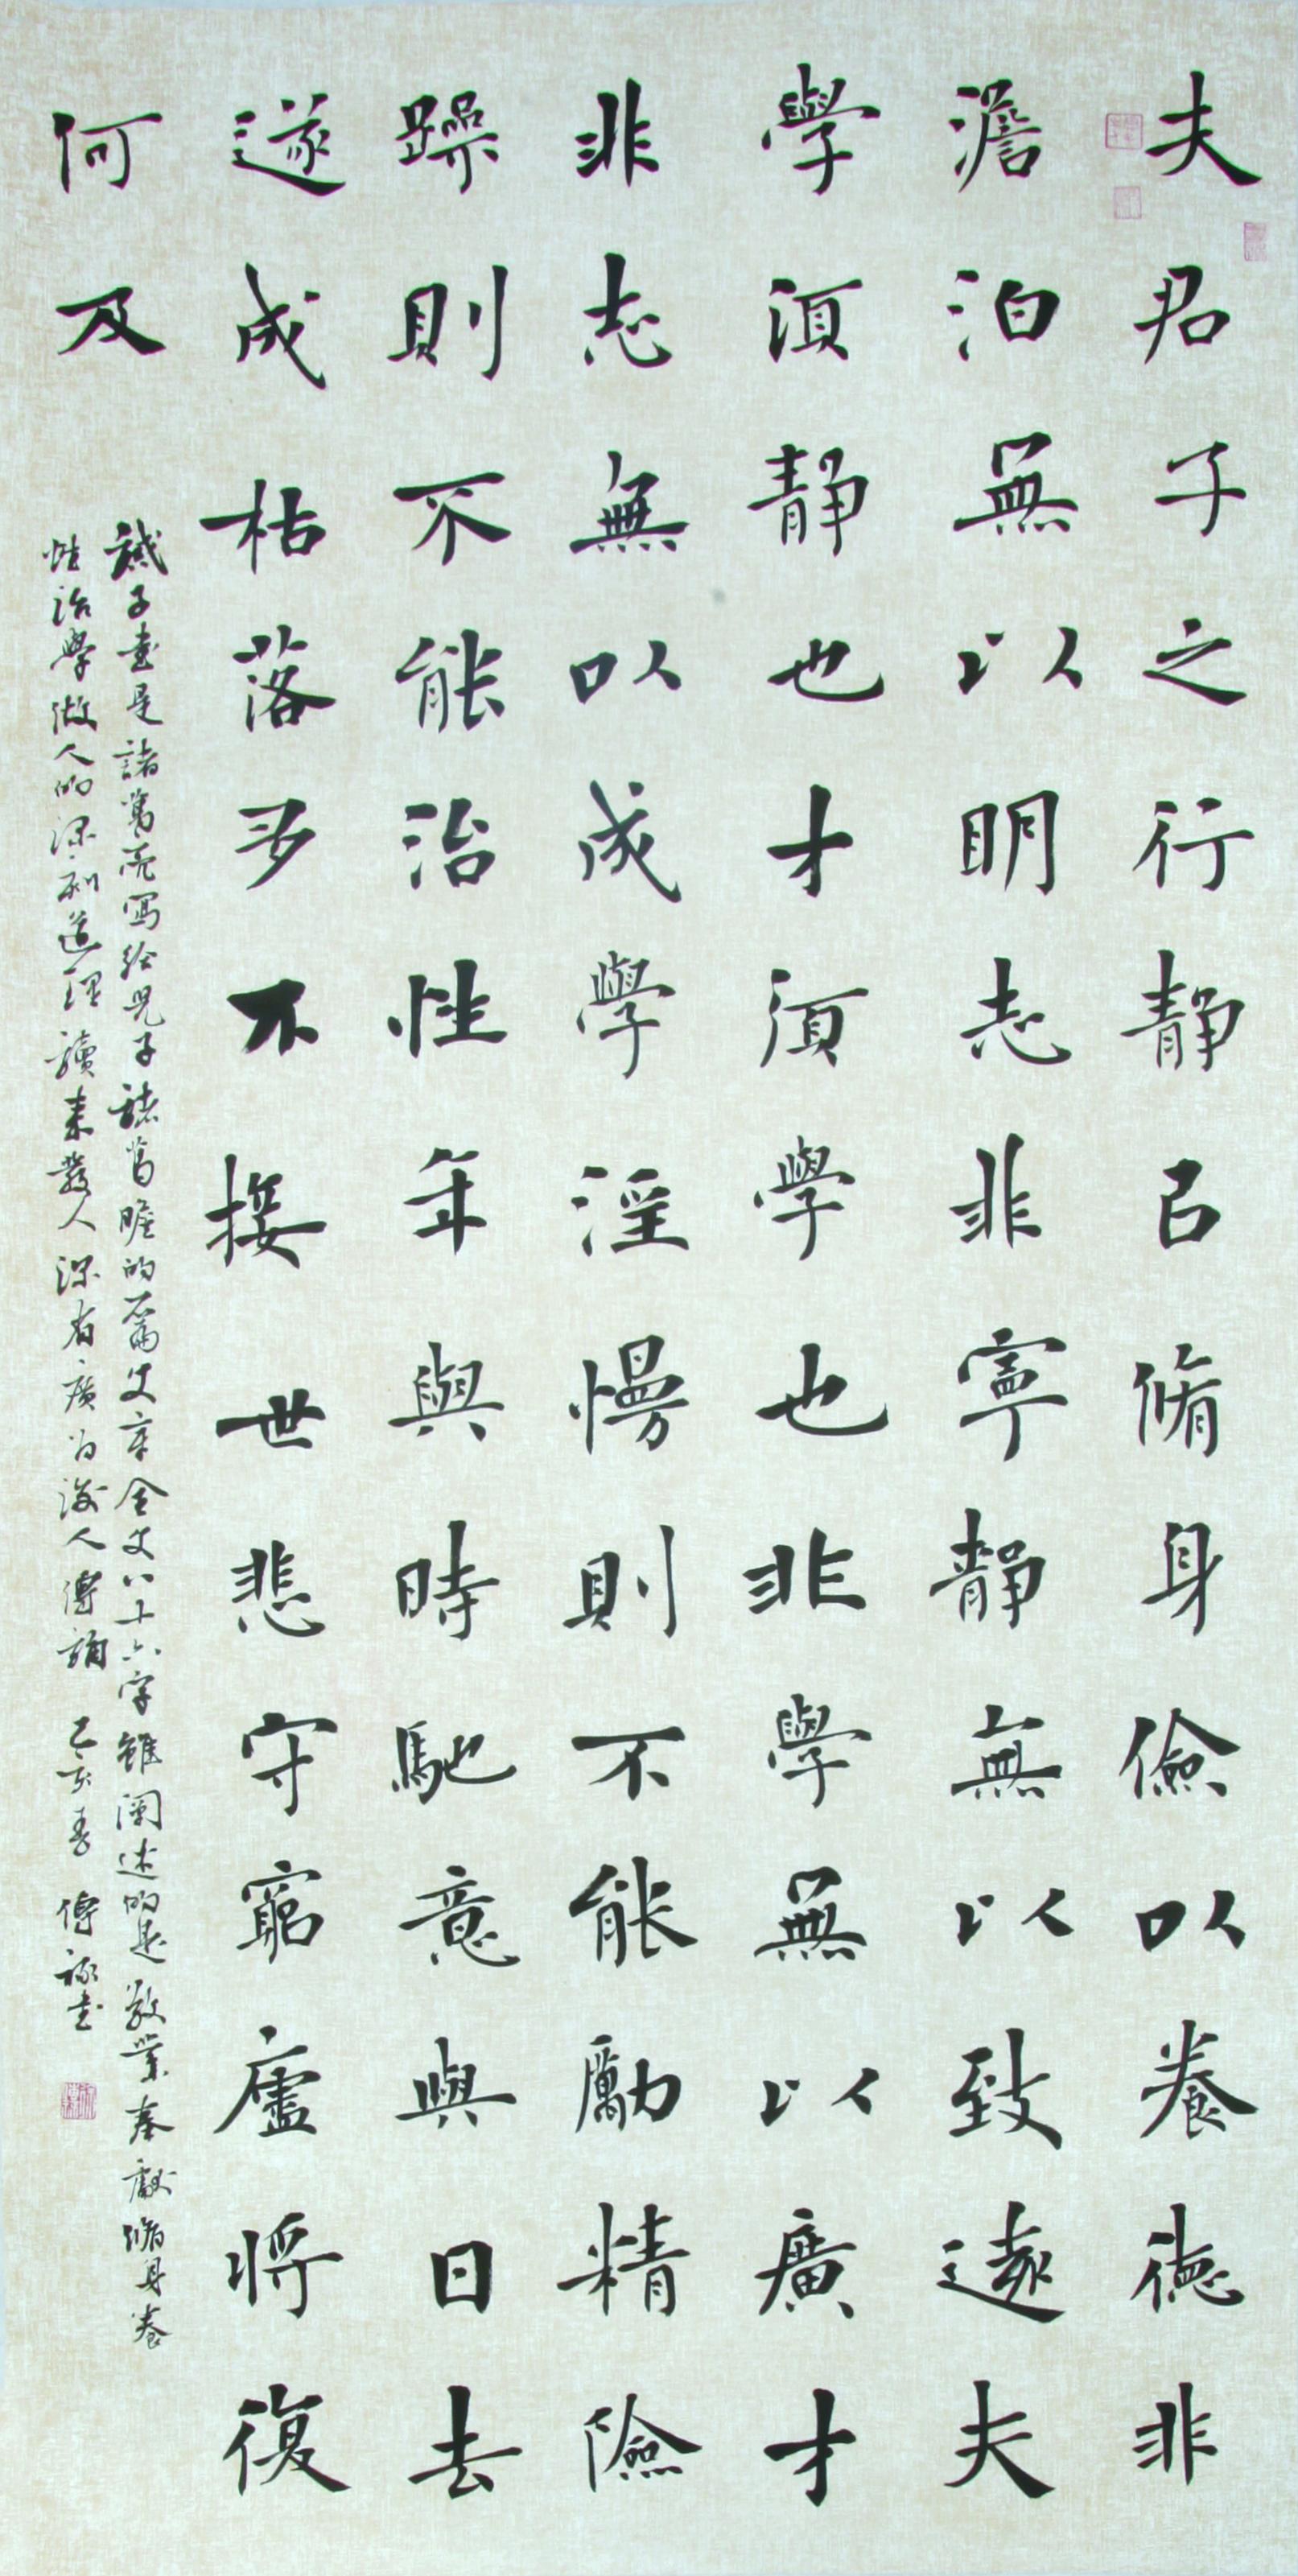 夫君子之行静已脩身儉以養德非
澹泊無以明志非寧静無以致遠夫
學湏静也才湏學也非學無以廣才
非志無以成學淫慢則不能勵精險
躁則不能治性年與時馳意與日去
遂成枯落多不接世悲守窮廬將復
何及
誡子書是諸葛亮寫给兒子諸葛瞻的一篇文章全文八十六字雖闡述的是敬業奉獻脩身養
性治學做人的深刻道理讀来發人深省廣为後人傳誦 乙亥春 傅 書